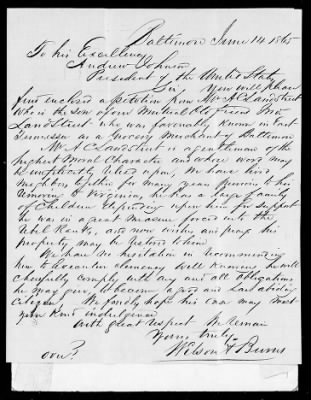 Baltimore June 14 1865
To his Excellency
Andrew Johnson
President of the United States
Sir, You will please
find enclosed a petition from Mr A C Landstreet
who is the son of our Mutual Old Friend
Landstreet who was favorably known in East
Tennessee as a Grocery Merchant of Baltimore
Mr A C Landstreet is a gentleman of the
highest Moral Character and whose word may
be implicitly relied upon, We have lived
Neighbors together for many years previous to his
removing to Virginia, he has a large family
of Children depending upon him for support
he was in a great measure forced into the
Rebel Ranks, and now wishes and prays his
property may be restored to him
We have no hesitation in recommending
him to Executive clemency well knowing he will
cheerfully comply with any and all obligations
he may give, to become a good and Law abiding
Citizen. We fondly hope his case may meet
your kind indulgence
With great respect We Remain
Yours truly
over Wilson & Burns